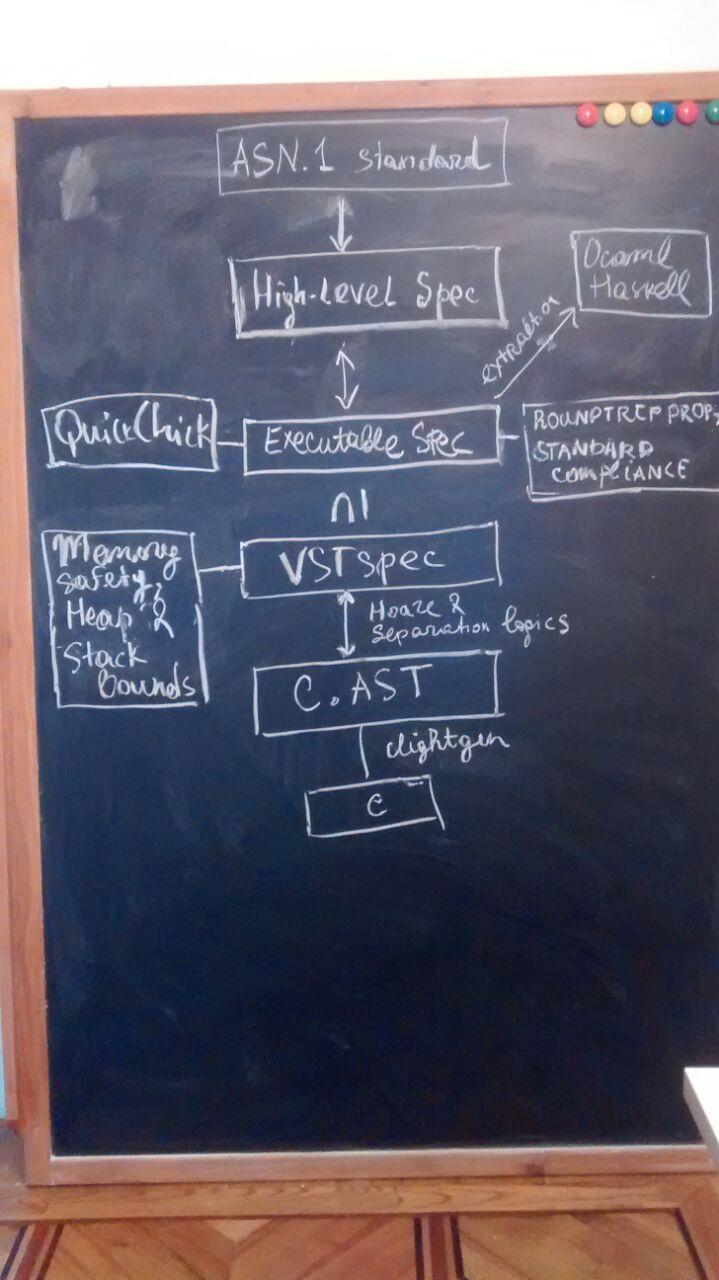 ASN.1 standard
High-Level Spec
Ocaml
Haskell
extraction
QuickChick
Executable Spec
ROUNDTRIP PROP,
STANDARD
COMPLIANCE
⊆
Memory
safety,
Heap &
Stack
Bounds
VST spec
Hoare &
separation logics
C.AST
clightgen
C